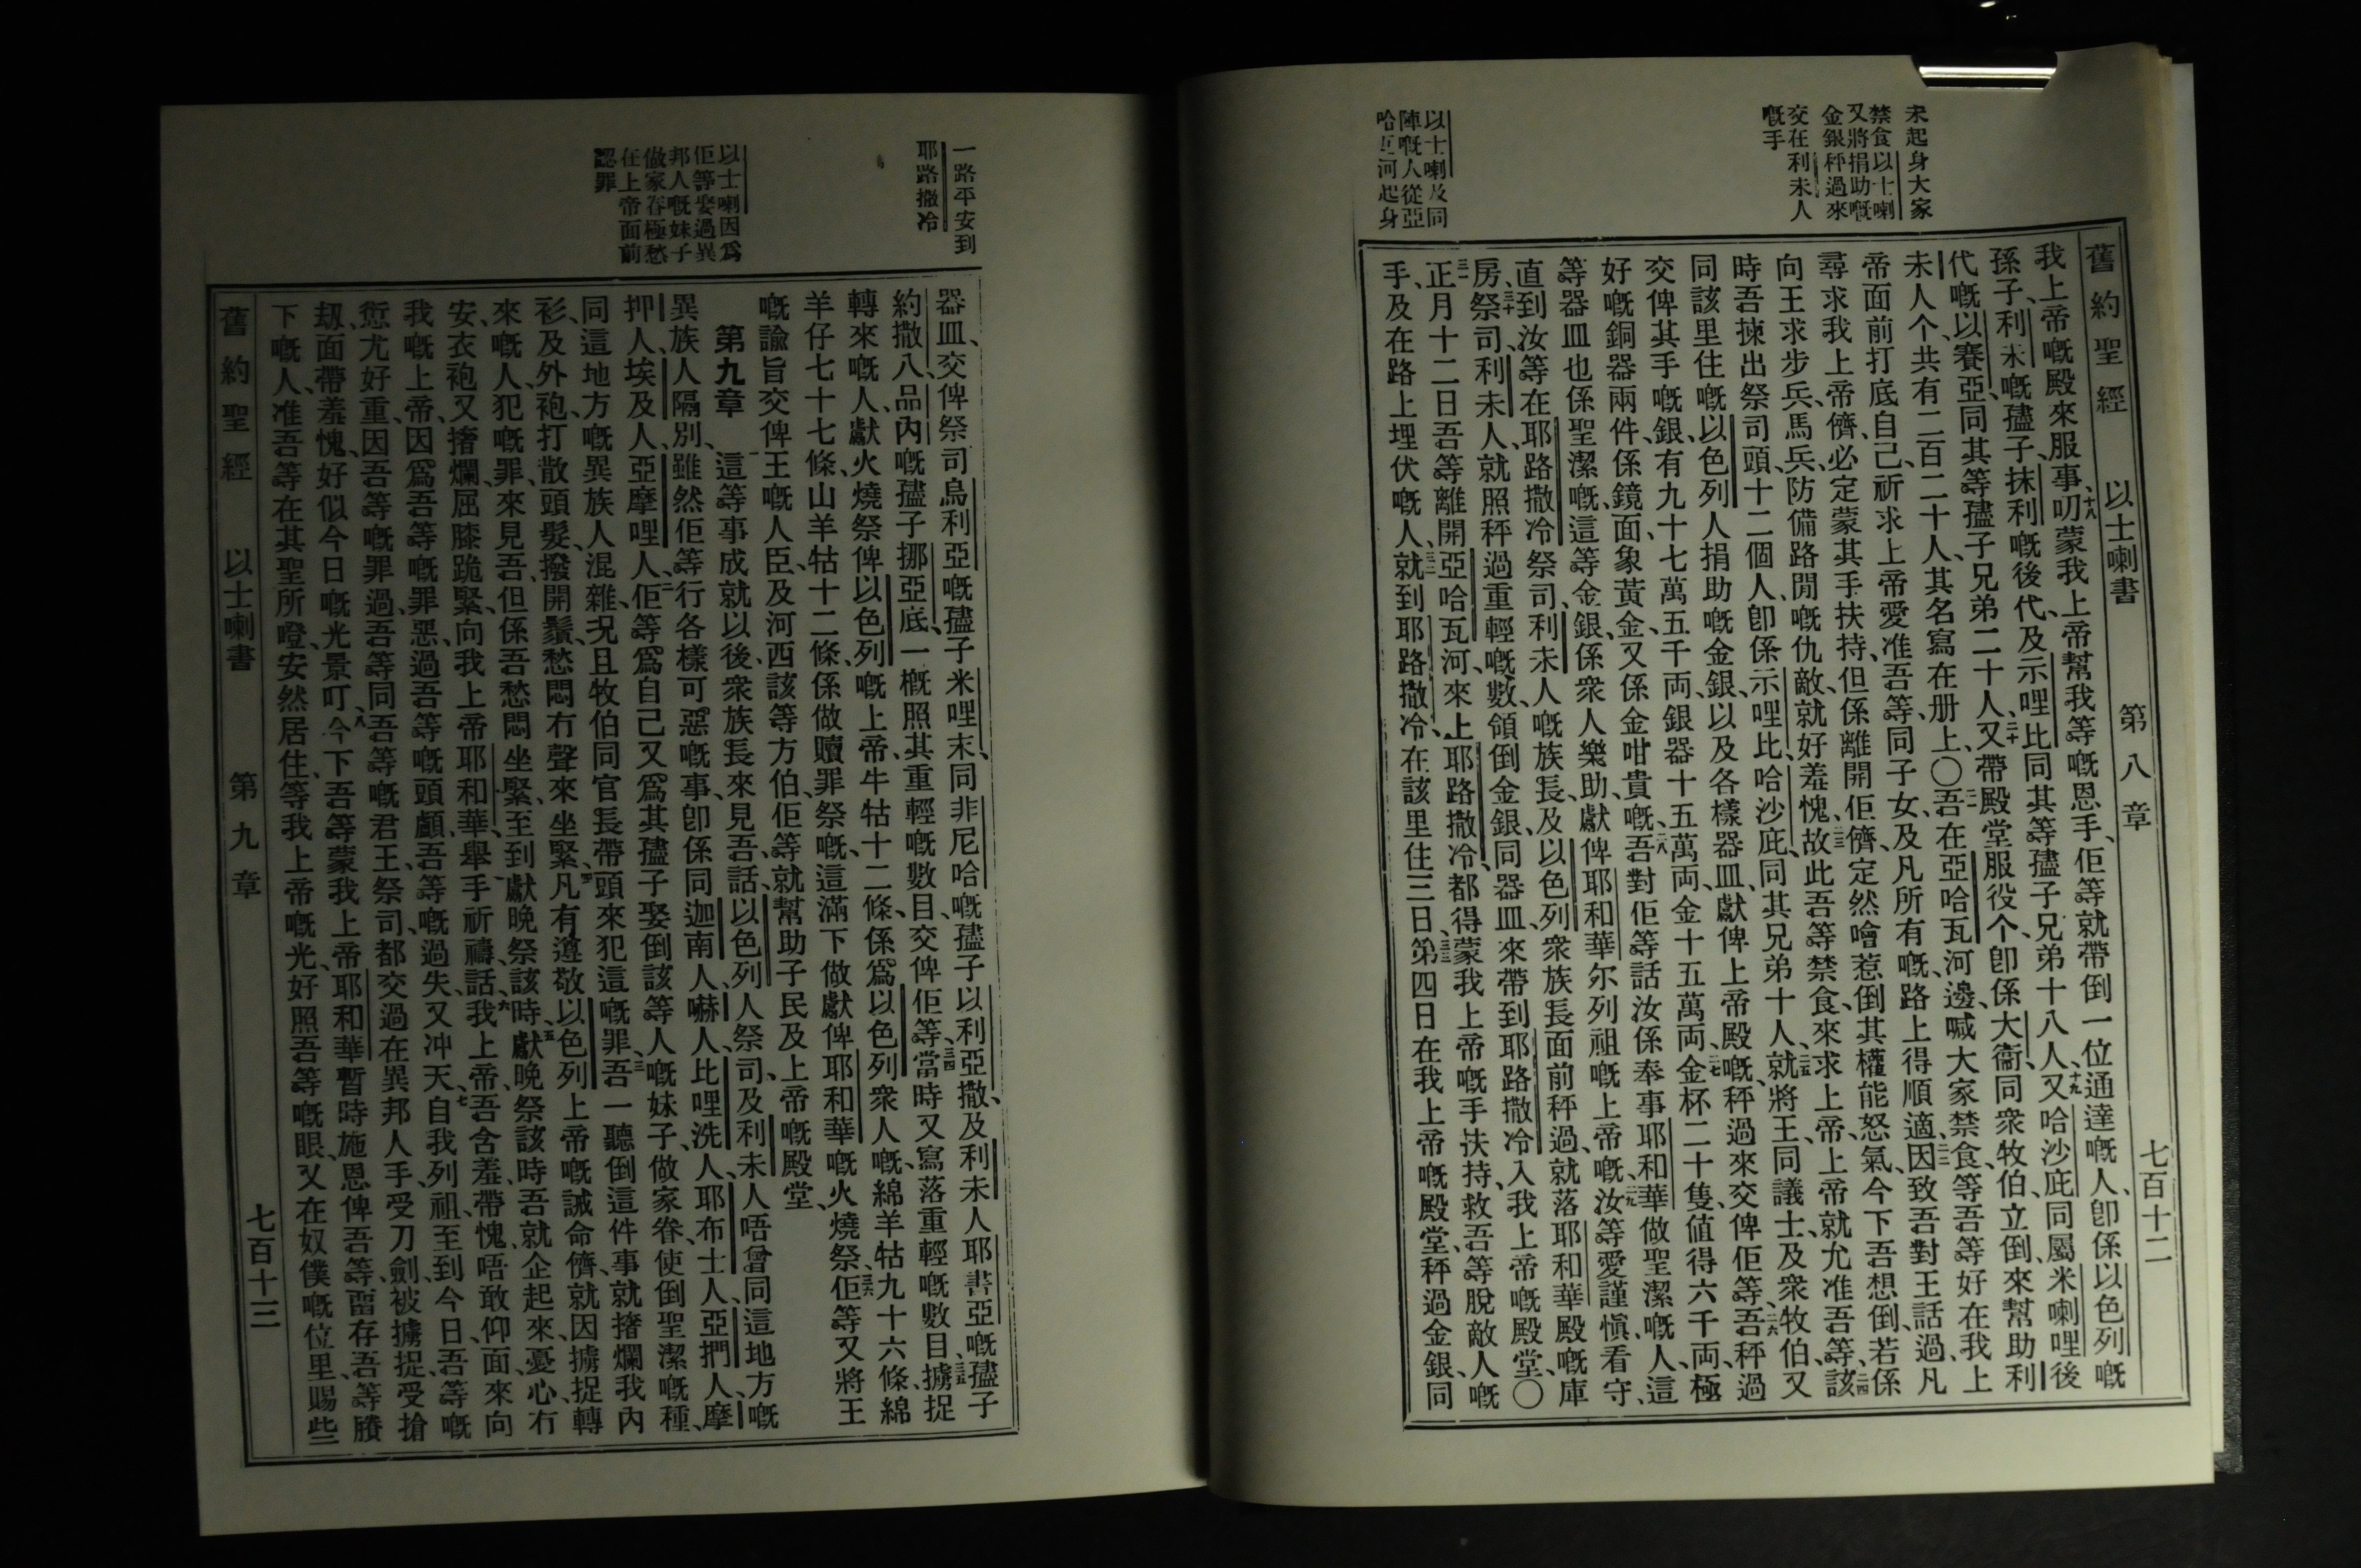 未起身大家
禁食以士喇
又將捐助嘅
金銀秤過來
交在利未人
嘅手
以士喇及同
陣嘅人從亞
哈瓦河起身
舊約聖經 以士喇書 第八章 七百十二
我上帝嘅殿來服事、十八叨蒙我上帝幫我等嘅恩手、佢等就帶倒一位通達嘅人、卽係以色列嘅
孫子、利未嘅𡥧子、抹利嘅後代、及示哩比、同其等𡥧子兄弟十八人、十九又哈沙庇、同屬米喇哩後
代嘅以賽亞、同其等𡥧子兄弟二十人、二十又帶殿堂服役个、卽係大衞同衆牧伯、立倒來幫助利
未人个、共有二百二十人、其名寫在册上、〇二一吾在亞哈瓦河邊、喊大家禁食、等吾等好在我上
帝面前打底自己、祈求上帝愛准吾等、同子女、及凡所有嘅、路上得順適、二二因致吾對王話過、凡
尋求我上帝儕、必定蒙其手扶持、但係離開佢儕、定然噲惹倒其權能怒氣、今下吾想倒、若係
向王求步兵、馬兵、防備路閒嘅仇敵、就好羞愧、二三故此吾等禁食、來求上帝、上帝就允准吾等、二四該
時吾揀出祭司頭十二個人、卽係示哩比、哈沙庇、同其兄弟十人、二五就將王、同議士、及衆牧伯、又
同該里住嘅以色列人捐助嘅金銀、以及各樣器皿、獻俾上帝殿嘅、秤過來交俾佢等、二六吾秤過
交俾其手嘅、銀、有九十七萬五千両、銀器十五萬両、金十五萬両、二七金杯二十隻、值得六千両、極
好嘅銅器兩件、係鏡面、象黃金、又係金咁貴嘅、二八吾對佢等話、汝係奉事耶和華做聖潔嘅人、這
等器皿也係聖潔嘅、這等金銀、係衆人樂助、獻俾耶和華尔列祖嘅上帝嘅、二九汝等愛謹愼看守、
直到汝等在耶路撒冷、祭司、利未人嘅族長、及以色列衆族長面前秤過、就落耶和華殿嘅庫
房、三十祭司、利未人、就照秤過重輕嘅數、領倒金銀、同器皿、來帶到耶路撒冷、入我上帝嘅殿堂、〇
三一正月十二日、吾等離開亞哈瓦河、來上耶路撒冷、都得蒙我上帝嘅手扶持、救吾等脫敵人嘅
手、及在路上埋伏嘅人、三二就到耶路撒冷、在該里住三日、三三第四日在我上帝嘅殿堂、秤過金銀、同
一路平安到
耶路撒冷
以士喇因爲
佢等娶過異
邦人嘅妹子
做家眷極愁
在上帝面前
認罪
器皿、交俾祭司烏利亞嘅𡥧子米哩末、同非尼哈嘅𡥧子以利亞撒、及利未人耶書亞嘅𡥧子
約撒八、品內嘅𡥧子挪亞底、三四一槪照其重輕嘅數目、交俾佢等、當時又寫落重輕嘅數目、三五擄捉
轉來嘅人、獻火燒祭俾以色列嘅上帝、牛牯十二條、係爲以色列衆人嘅、綿羊牯九十六條、綿
羊仔七十七條、山羊牯十二條、係做贖罪祭嘅、這滿下做獻俾耶和華嘅火燒祭、三六佢等又將王
嘅諭旨、交俾王嘅人臣、及河西該等方伯、佢等就幫助子民及上帝嘅殿堂、
第九章 這等事成就以後、衆族長來見吾、話、以色列人、祭司、及利未人、唔曾同這地方嘅
異族人隔別、雖然佢等行各樣可惡嘅事、卽係同迦南人、嚇人、比哩洗人、耶布士人、亞捫人、摩
押人、埃及人、亞摩哩人、二佢等爲自己、又爲其𡥧子娶倒該等人嘅妹子、做家眷、使倒聖潔嘅種、
同這地方嘅異族人混雜、况且牧伯同官長帶頭來犯這嘅罪、三吾一聽倒這件事、就撦爛我內
衫、及外袍、打散頭髮、撥開鬚、愁悶冇聲來坐緊、四凡有遵敬以色列上帝嘅誡命儕、就因擄捉轉
來嘅人、犯嘅罪、來見吾、但係吾愁悶坐緊、至到獻晚祭該時、五獻晚祭該時、吾就企起來、憂心冇
安、衣袍又撦爛、屈膝跪緊、向我上帝耶和華、舉手祈禱話、六我上帝、吾含羞帶愧、唔敢仰面、來向
我嘅上帝、因爲吾等嘅罪惡、過吾等嘅頭顱、吾等嘅過失、又冲天、七自我列祖、至到今日、吾等嘅
愆尤好重、因吾等嘅罪過、吾等同吾等嘅君王、祭司、都交過在異邦人手、受刀劍、被擄捉、受搶
刼、面帶羞愧、好似今日嘅光景叮、八今下吾等蒙我上帝耶和華暫時施恩俾吾等、畱存吾等賸
下嘅人、准吾等在其聖所噔安然居住、等我上帝嘅光、好照吾等嘅眼、又在奴僕嘅位里、賜些
舊約聖經 以士喇書 第九章 七百十三